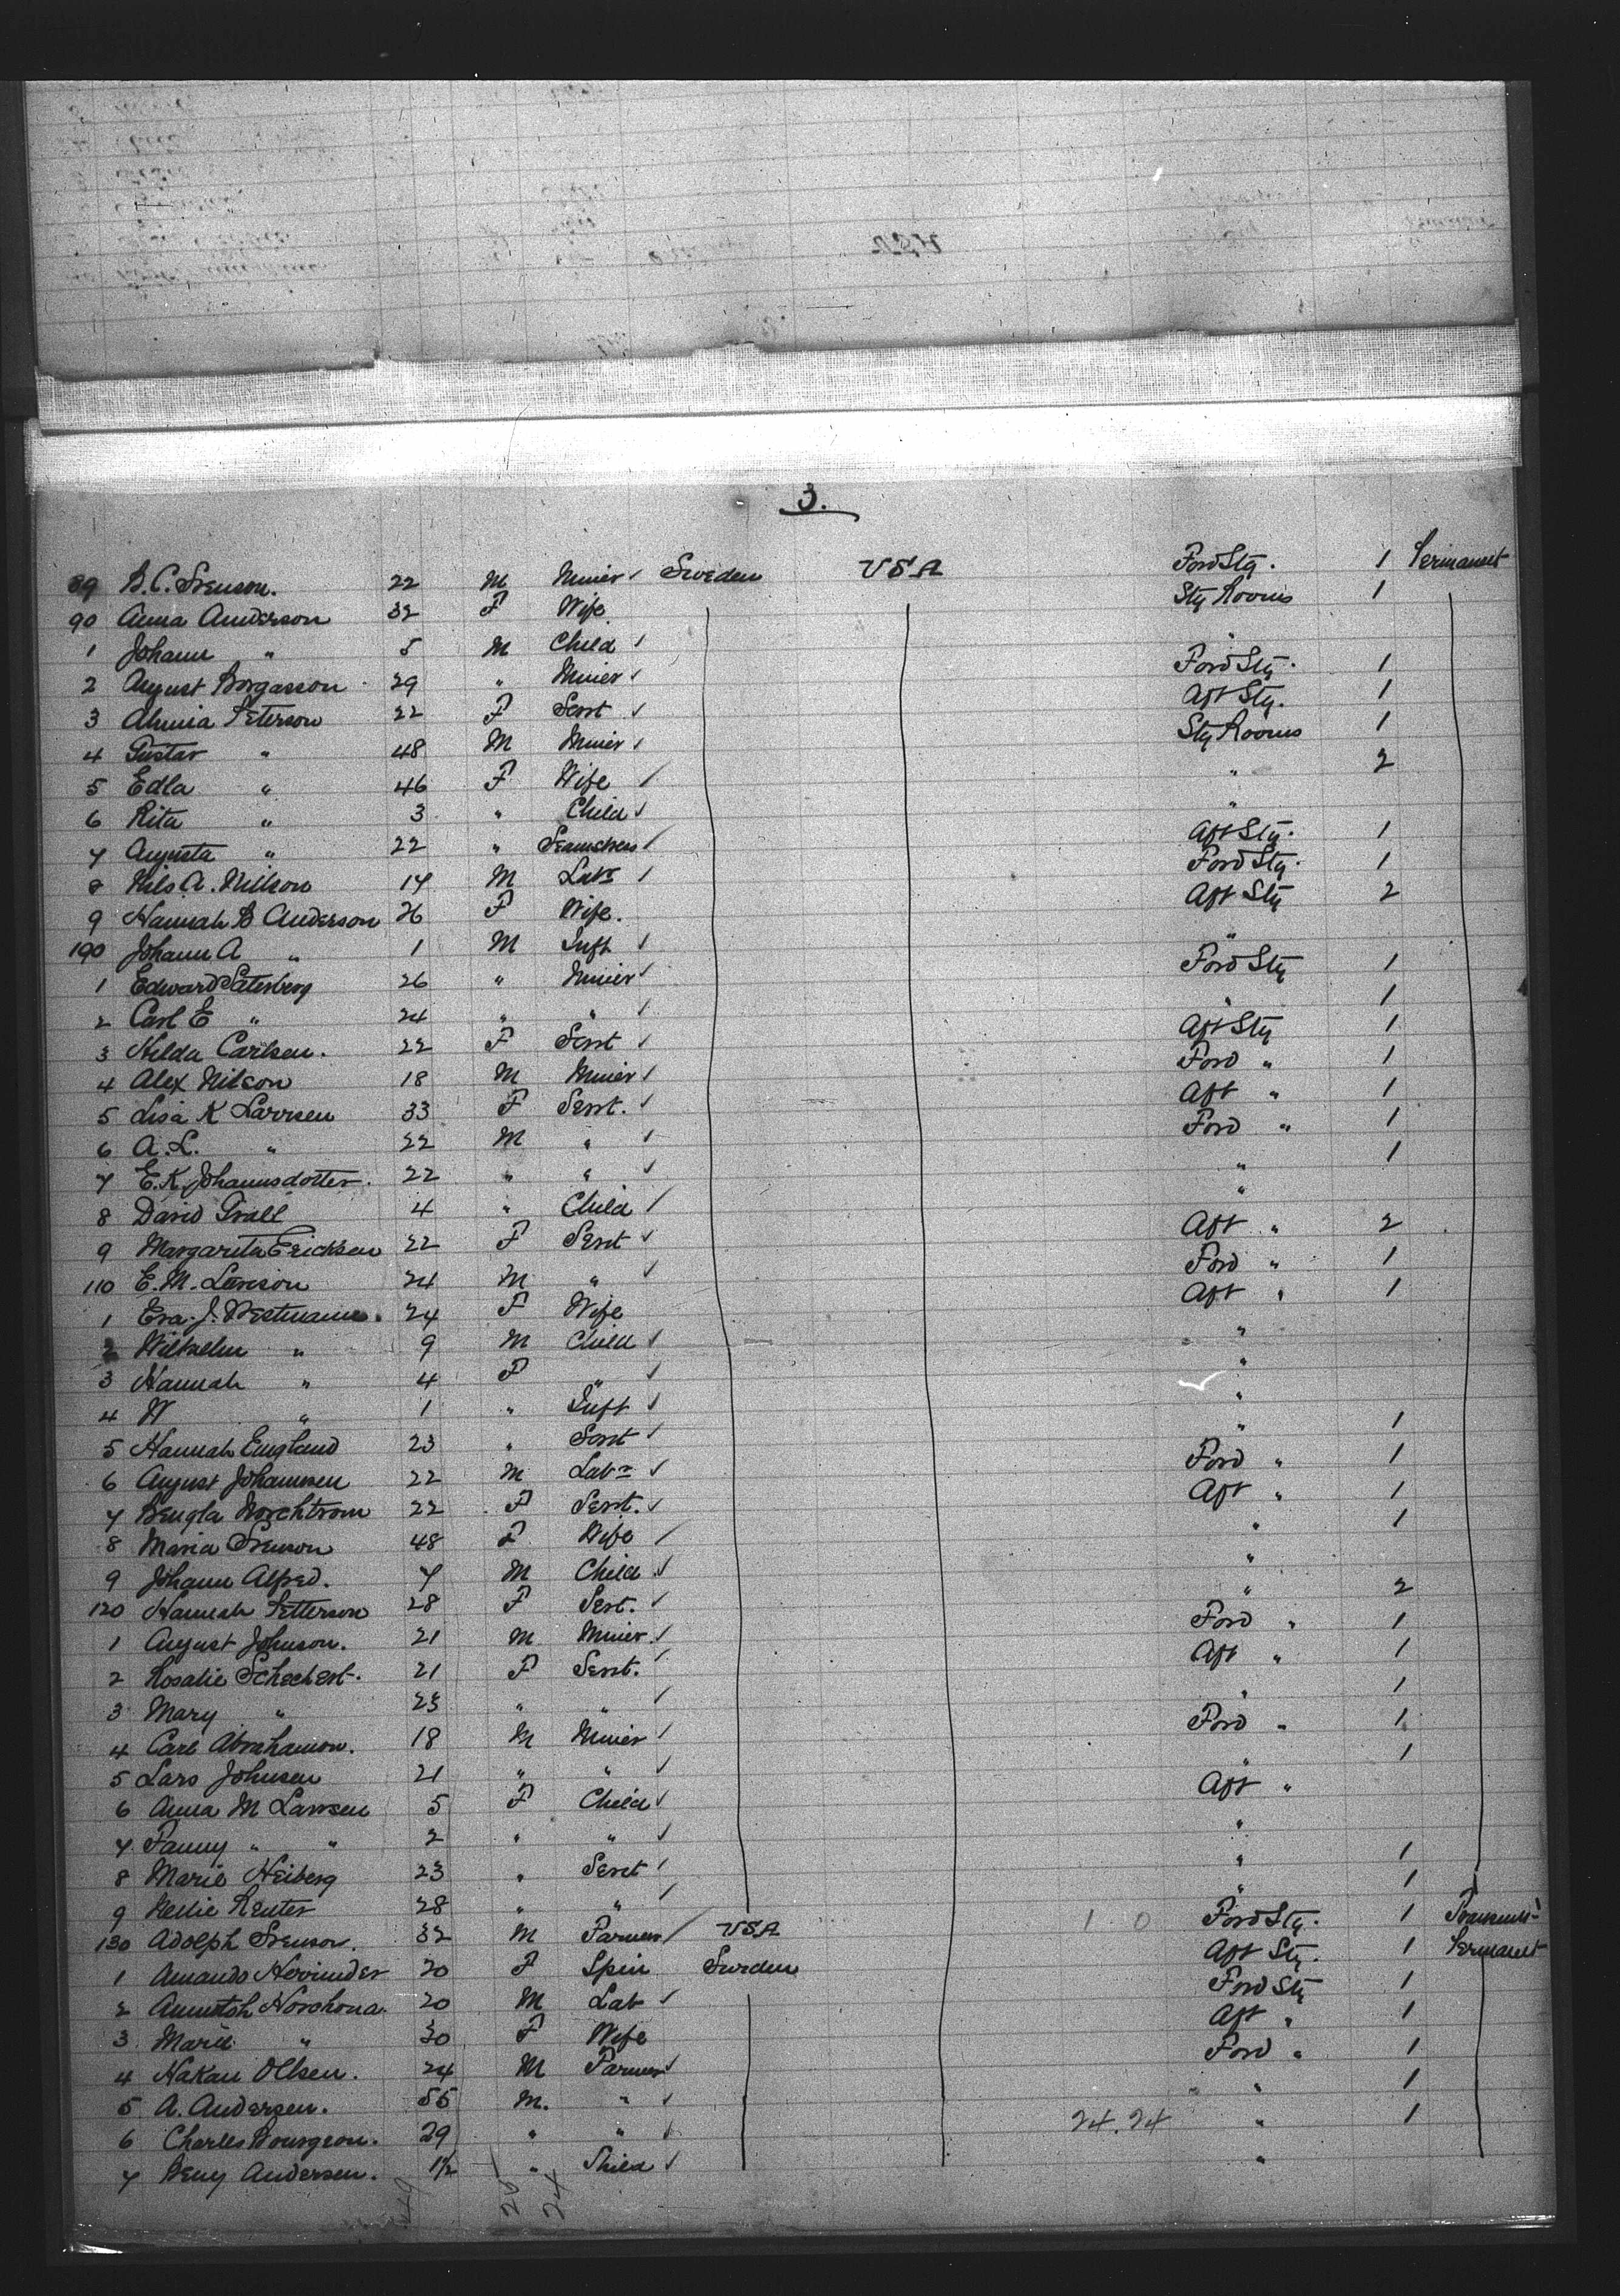 3.
89 B. C. Svenson. 22 M Miner Sweden USA Ford Stg. 1 Permanent
90 Anna Anderson 32 F Wife Stg Rooms 1
1 Johann " 5 M Child "
2 August Borgasson 29 " Miner Ford Stg. 1
3 Almia Peterson 22 F Servt Aft Stg. 1
4 Gustav " 48 M Miner Stg Rooms 1
5 Edla " 46 F Wife " 2
6 Rita " 3 " Child "
7 Augusta " 22 " Seamstress Aft Stg. 1
8 Nils A. Nillson 17 M Labr Ford Stg. 1
9 Hannah B Anderson 26 F Wife. Aft Stg 2
190 Johann A " 1 M Inft "
1 Edward Saterberg 26 " Miner Ford Stg 1
2 Carl E " 24 " " " 1
3 Hilda Carlsen. 22 F Servt Aft Stg 1
4 Alex Nilson 18 M Miner Ford " 1
5 Lisa K Larrsen 33 F Servt. Aft " 1
6 A. L. " 22 M " Ford " 1
7 E. K. Johannsdotter. 22 " " " 1
8 David Grall 4 " Child "
9 Margareta Ericksen 22 F Servt Aft " 2
110 E. M. Larsson 24 M " Ford " 1
1 Eva. J. Westmann. 24 F Wife Aft " 1
2 Wilhelm " 9 M Child "
3 Hannah " 4 F " "
4 W " 1 " Inft "
5 Hannah England 23 " Servt " 1
6 August Johannsen 22 M Labr Ford " 1
7 Bengla Norchtrom 22 F Servt. Aft " 1
8 Maria Svenson 48 F Wife " 1
9 Johann Alfred. 7 M Child "
120 Hannah Petterson 28 F Servt. " 2
1 August Johnson. 21 M Miner Ford " 1
2 Rosalie Schechert. 21 F Servt. Aft " 1
3 Mary " 23 " " " 1
4 Carl Abrahamson. 18 M Miner Ford " 1
5 Lars Johnsen 21 " " " 1
6 Anna M Larrsen 5 F Child Aft "
7 Fanny " " 2 " " "
8 Marie Heiberg 23 " Servt " 1
9 Nellie Renter 28 " " " 1
130 Adolph Svenson. 32 M Farmer USA 1 0 Ford Stg. 1 Transient
1 Amanda 20 F Spin Sweden Aft Stg. 1 Permanent
2 20 M Lab Ford Stg 1
3 Marie " 30 F Wife Aft " 1
4 Hakan Ollsen. 24 M Farmer Ford " 1
5 A. Andersen. 55 M. " " 1
6 Charles Bourgeon. 29 " " 24.24 " 1
7 Andersen. 1½ " Child "
49 25 24